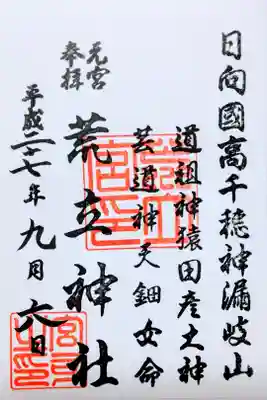 日向國高千穂神漏岐山
道祖神猿田彦大神
芸道神天鈿女命
元宮
奉拝
荒立神社
平成二十七年九月六日